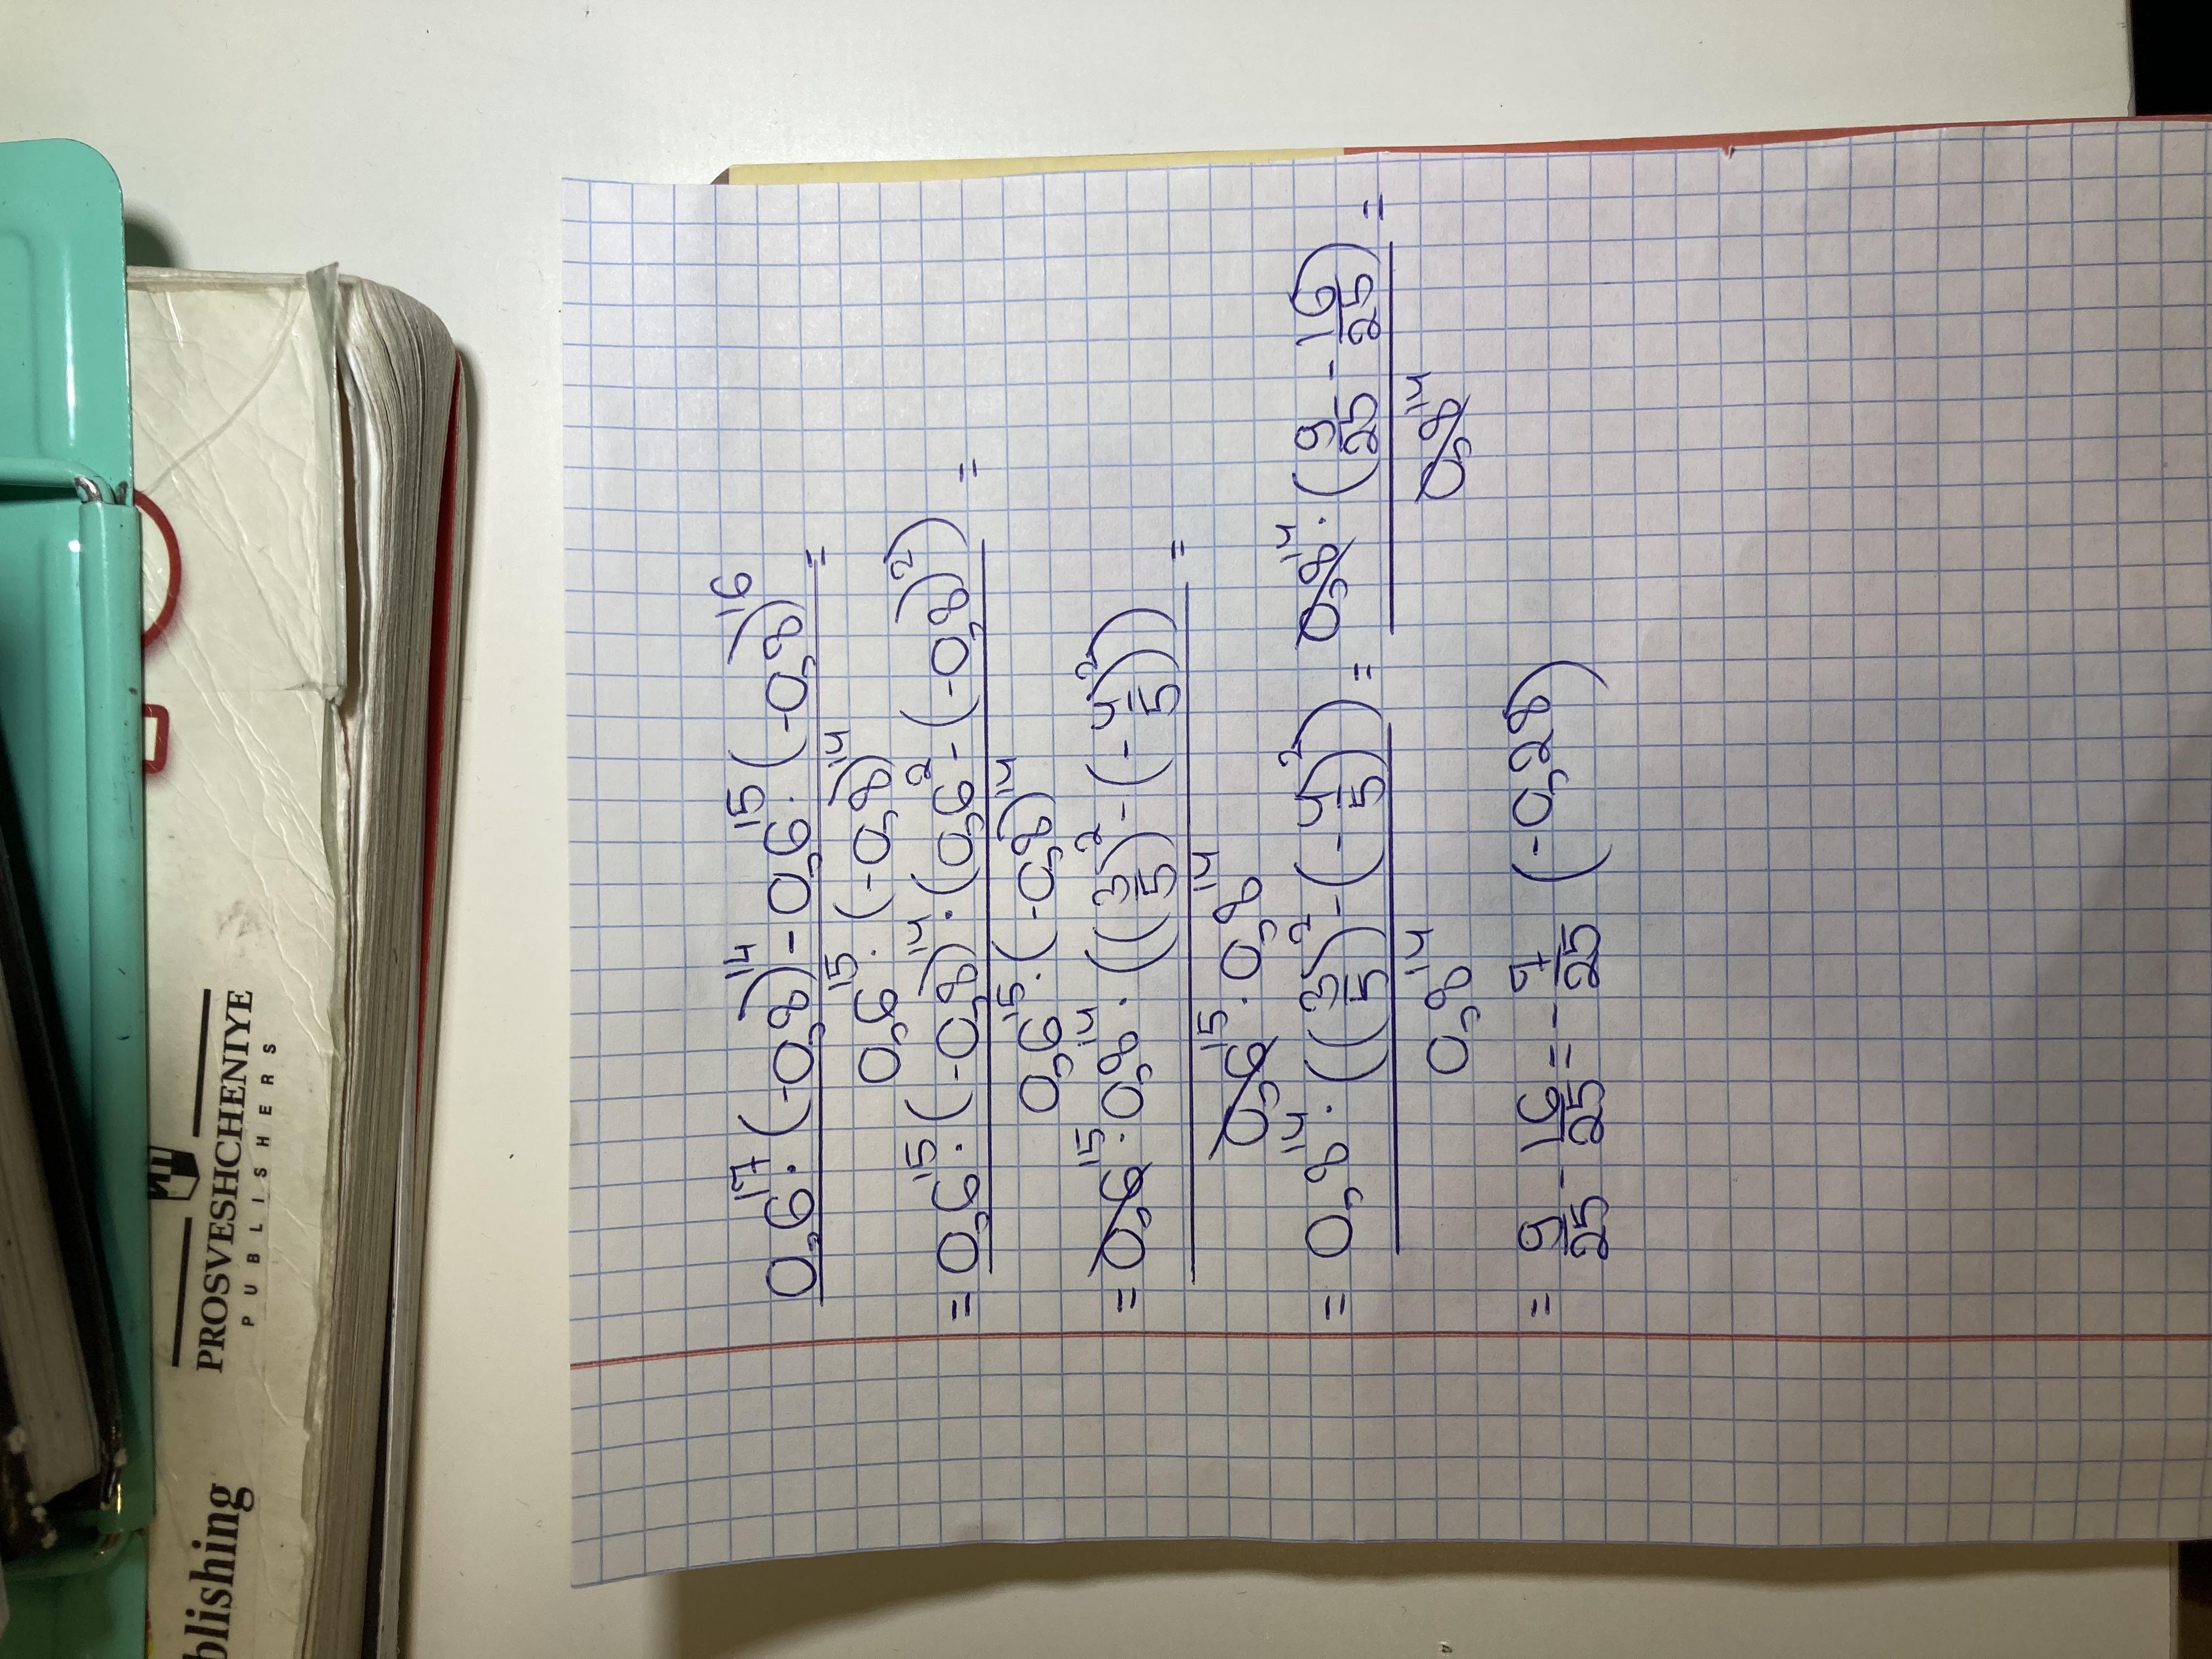 0,6¹⁷·(-0,8)¹⁴-0,6·¹⁵(-0,8)¹⁶ =
0,6¹⁵·(-0,8)¹⁴
= 0,6¹⁵·(-0,8)¹⁴·(0,6²-(-0,8)²) =
0,6¹⁵·(-0,8)¹⁴
= 0,6¹⁵·0,8¹⁴·((3/5)²-(-4/5)²) =
0,6¹⁵·0,8¹⁴
= 0,8¹⁴·((3/5)²-(-4/5)²) = 0,8¹⁴·(9/25-16/25) =
0,8¹⁴ 0,8¹⁴
= 9/25-16/25=-7/25 (-0,28)
PROSVESHCHENIYE
PUBLISHERS
blishing